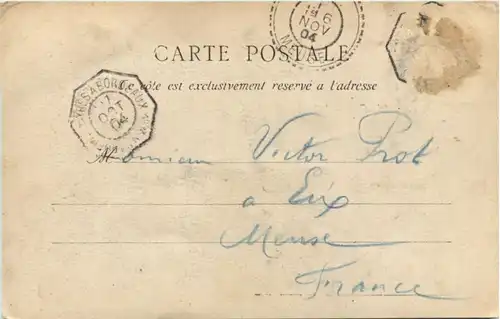 6
NOV
04
CARTE POSTALE
côte est exclusivement reservé a l'adresse
OCT
04
Monsieur Victor Prot
à Eix
Meuse
France